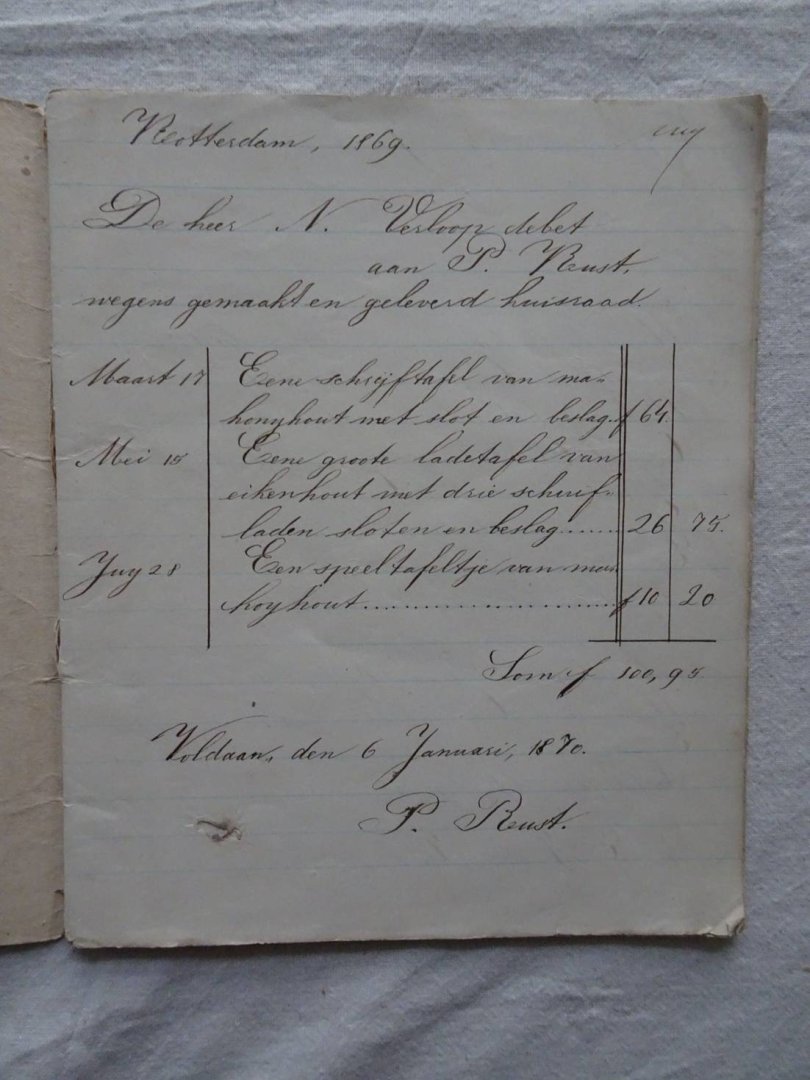 Rotterdam, 1869.
De heer N. Verloop debet
aan P. Rust.
wegens gemaakt en geleverd huisraad.
Maart 17 Eene schrijftafel van ma-
honyhout met slot en beslag.. f 64.
Mei 15 Eene groote ladetafel van
eikenhout met drie schuif-
laden sloten en beslag....... 26 75.
Juy 28 Een speeltafeltje van ma-
hoyhout........................ f 10 20
Som f 100,95
Voldaan, den 6 Januari, 1870.
P. Rust.